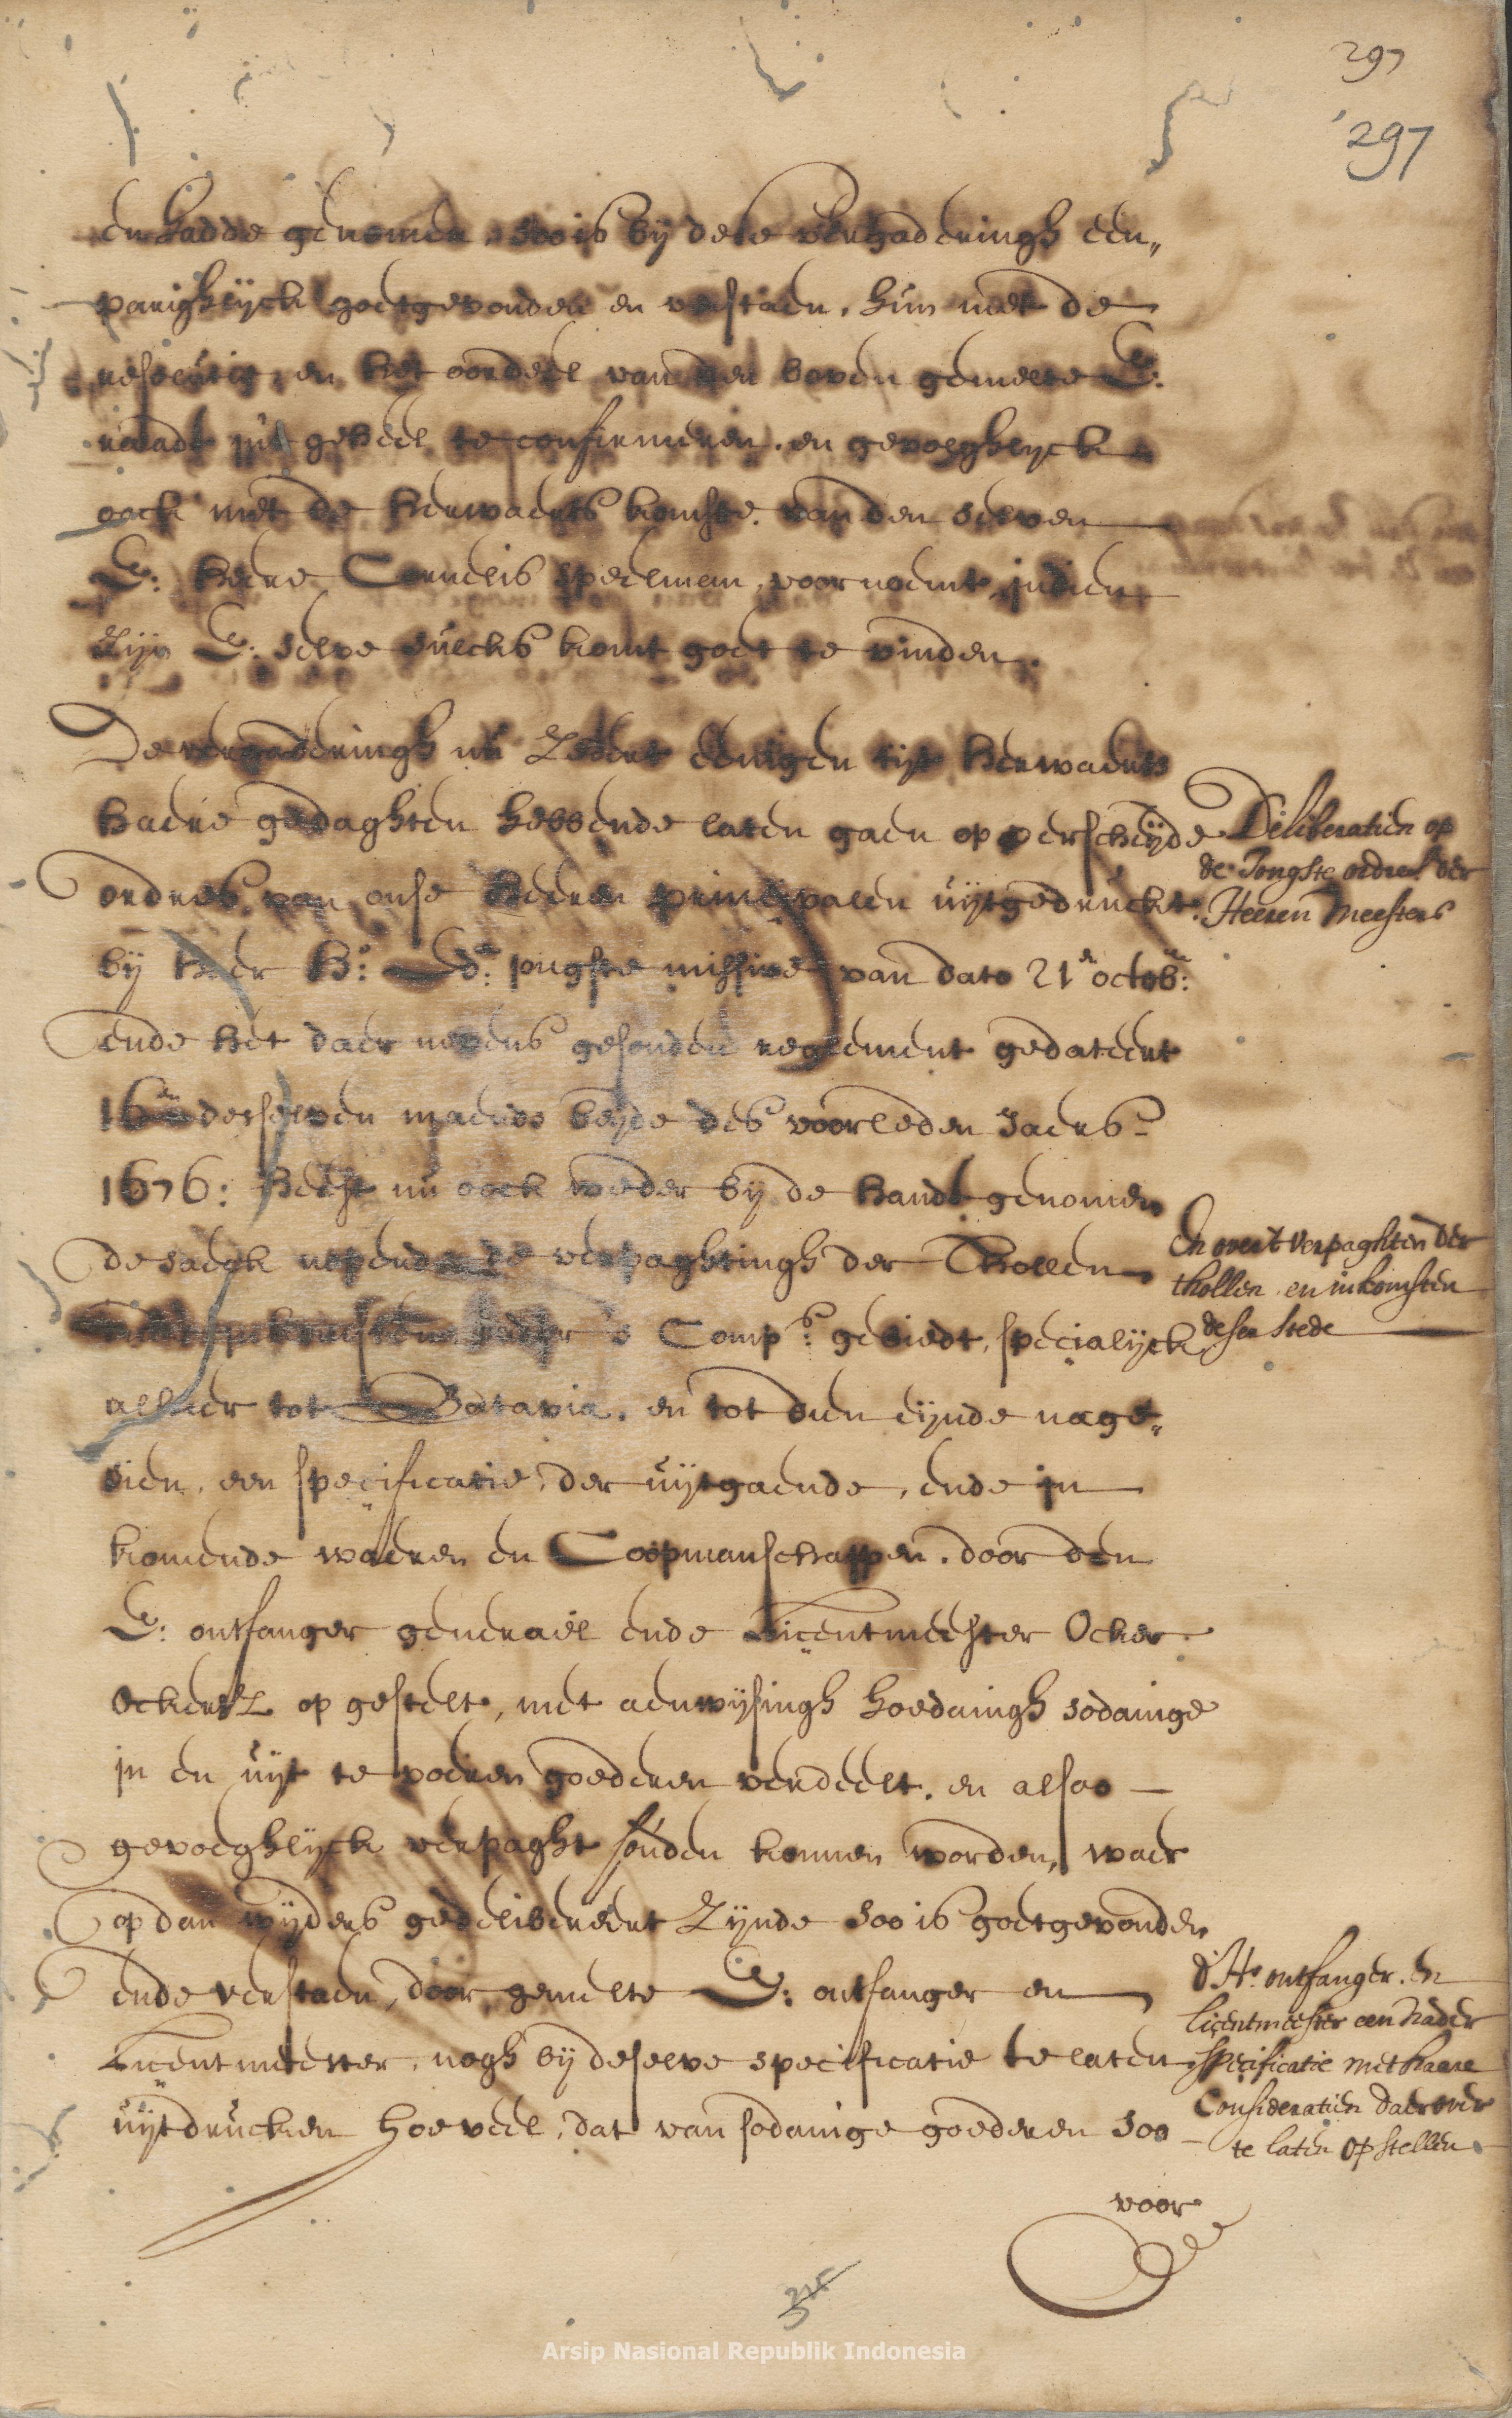 297
297
en hadde genomen, soo is bij dese vergaderingh een„
parighlijck goetgevonden en verstaen, hun met de
resolutie, en het oordeel van den boven gemelte E:
raadt in't geheel te confirmeren, en gevolghlyck
oock met de herwaerts komste van den selven
E: heere Cornelis speelman, voornoemt, indien
zijn E: selve sulcks komt goet te vinden.
De vergaderingh nu zedert eenigen tijt herwaerts
haere gedaghten hebbende laten gaen op verscheijde
ordres van onse heeren principalen uijtgedruckt
bij haer H: Ed: jongste missive van dato 21en octob:
ende het daer nevens gesonden reglement gedateert
16en derselven maendt beijde des voorleden Jaers
1676: heeft nu oock weder bij de handt genomen
de saeck nopende de verpaghtingh der Thollen
'sComps: gebiedt, specialijck
alhier tot Batavia, en tot dien eijnde nage„
sien, een specificatie, der uijtgaende, ende in
komende waeren en Coopmanschappen, door den
E: ontfanger generael ende Licentmeester Ocker
Ockersz op gestelt, met aenwijsingh hoedanigh sodanige
in en uijt te voeren goederen verdeelt, en alsoo
gevoeghlijck verpaght souden konnen worden, waer
op dan wijders gedelibereert zijnde soo is goetgevonden
ende verstaen, door gemelte E: ontfanger en
Licentmeester, nogh bij deselve specificatie te laten
uijtdrucken hoeveel, dat van sodanige goederen soo
voor
Deliberatien op
de Jongste ordres der
Heeren Meesters
En over't verpaghten der
thollen en inkomsten
deser stede
d'Hr. ontfanger en
licentmeester een nader
specificatie met haere
Consideratien daerover
te laten opstellen
Arsip Nasional Republik Indonesia